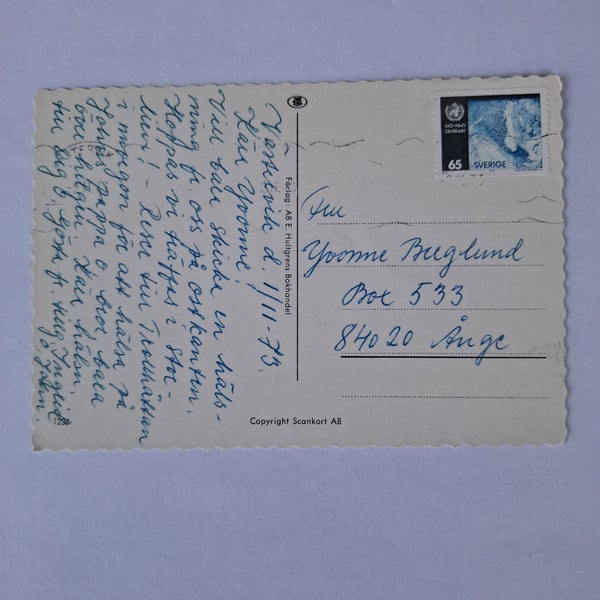 Västervik d. 1/11-73.
Kära Yvonne!
Vill bara skicka en häls-
ning fr oss på ostkusten.
Hoppas vi träffas i Stor-
Men! - Reser till Trollhättan
i morgon för att hälsa på
pappa o bror, bara
över helgen. Kära hälsn.
till dig o Gösta fr. mig Ingrid
o John.
1236
Förlag: AB E. Hultgrens Bokhandel
Copyright Scankort AB
IMO-WMO
CENTENARY
65
SVERIGE
Fru
Yvonne Berglund
Box 533
840 20 Ånge